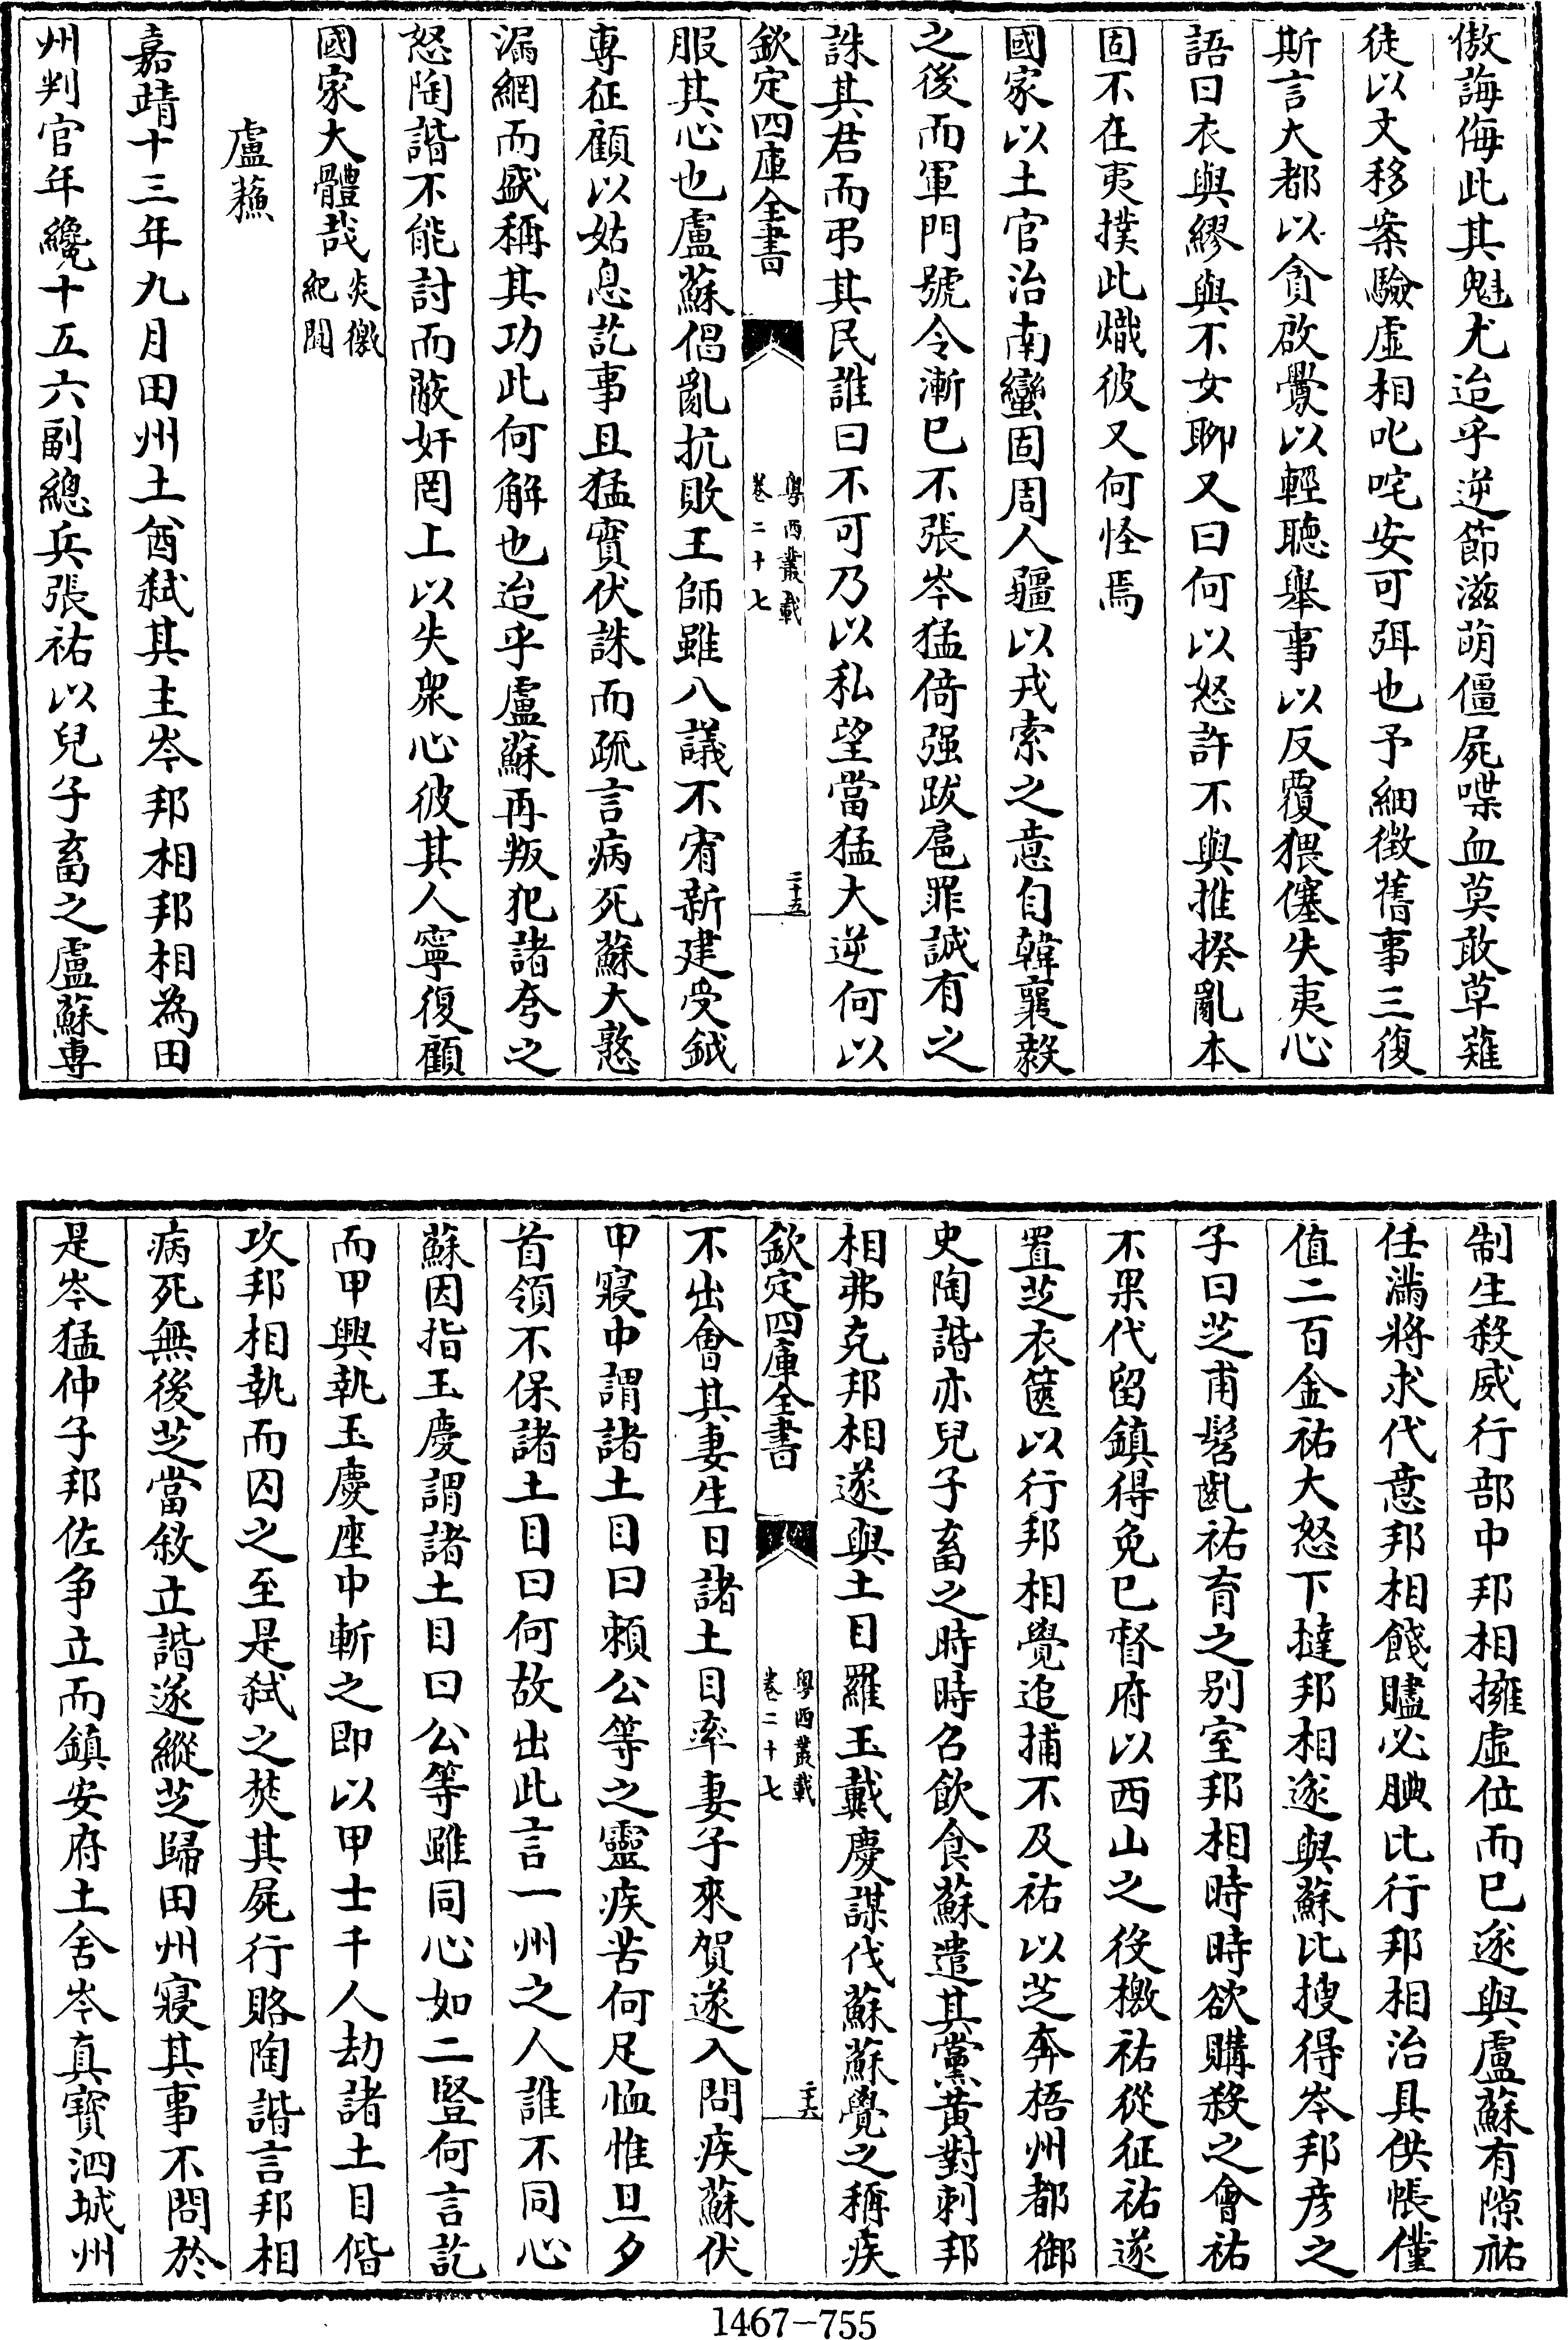 傲誨侮此其魁尤迨乎逆節滋萌僵屍喋血莫敢草薙
徒以文移案驗虛相叱咤安可弭也予細徴舊事三復
斯言大都以貪啟釁以輕聽舉事以反覆猥僿失夷心
語曰衣與繆與不女聊又曰何以怒許不與推揆亂本
固不在夷撲此熾彼又何怪焉
國家以土官治南蠻固周人疆以戎索之意自韓襄毅
之後而軍門號令漸已不張岑猛倚强跋扈罪誠有之
誅其君而弔其民誰曰不可乃以私望當猛大逆何以
欽定四庫全書
粤西叢載
卷二十七
二十五
服其心也盧蘇倡亂抗敗王師雖八議不宥新建受鉞
專征顧以姑息訖事且猛實伏誅而疏言病死蘇大憝
漏網而盛稱其功此何解也迨乎盧蘇再叛犯諸夸之
怒陶諧不能討而蔽奸罔上以失衆心彼其人寧復顧
國家大體哉
炎徼
紀聞
盧蘓
嘉靖十三年九月田州土酋弑其主岑邦相邦相為田
州判官年纔十五六副總兵張祐以兒子畜之盧蘇專
制生殺威行部中邦相擁虛位而已遂與盧蘇有隙祐
任滿將求代意邦相餞贐必腆比行邦相治具供帳僅
值二百金祐大怒下撻邦相遂與蘇比搜得岑邦彦之
子曰芝甫髫齓祐育之别室邦相時時欲購殺之會祐
不果代留鎮得免已督府以西山之役檄祐從征祐遂
置芝衣篋以行邦相覺追捕不及祐以芝奔梧州都御
史陶諧亦兒子畜之時時召飲食蘇遣其黨黄對刺邦
相弗克邦相遂與土目羅玉戴慶謀伐蘇蘇覺之稱疾
欽定四庫全書
粤西叢載
卷二十七
二十六
不出會其妻生日諸土目率妻子來賀遂入問疾蘇伏
甲寢中謂諸土目曰賴公等之靈疾苦何足恤惟旦夕
首領不保諸土目曰何故出此言一州之人誰不同心
蘇因指玉慶謂諸土目曰公等雖同心如二豎何言訖
而甲興執玉慶座中斬之即以甲士千人劫諸土目偕
攻邦相執而囚之至是弑之焚其屍行賂陶諧言邦相
病死無後芝當敘立諧遂縱芝歸田州寢其事不問於
是岑猛仲子邦佐争立而鎮安府土舍岑真寳泗城州
1467-755